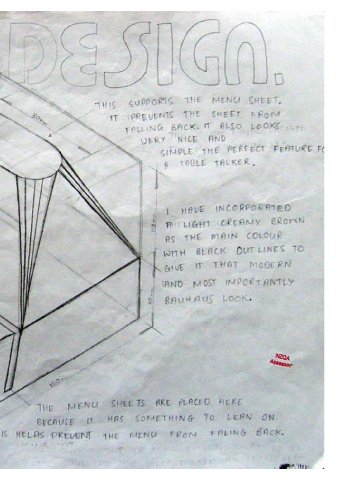 DESIGN.
THIS SUPPORTS THE MENU SHEET.
IT PREVENTS THE SHEET FROM
FALLING BACK. IT ALSO LOOKS
VERY NICE AND
SIMPLE THE PERFECT FEATURE FO
A TABLE TALKER.
I HAVE INCORPORATED
A LIGHT CREAMY BROWN
AS THE MAIN COLOUR
WITH BLACK OUTLINES TO
GIVE IT THAT MODERN
AND MOST IMPORTANTLY
BAUHAUS LOOK.
NZQA
Assessor
THE MENU SHEETS ARE PLACED HERE
BECAUSE IT HAS SOMETHING TO LEAN ON
IS HELPS PREVENT THE MENU FROM FALING BACK.